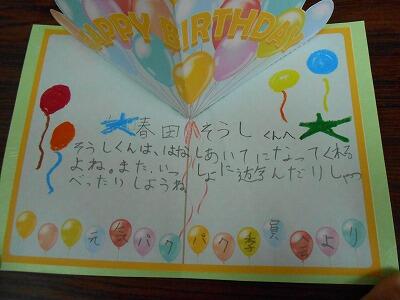 HAPPY BIRTHDAY
春田 そうし くんへ
そうしくんは、はなしあいてになってくれる
よね。また、いっしょに遊んだりしゃ
べったりしようね
元会パクパク李員会より